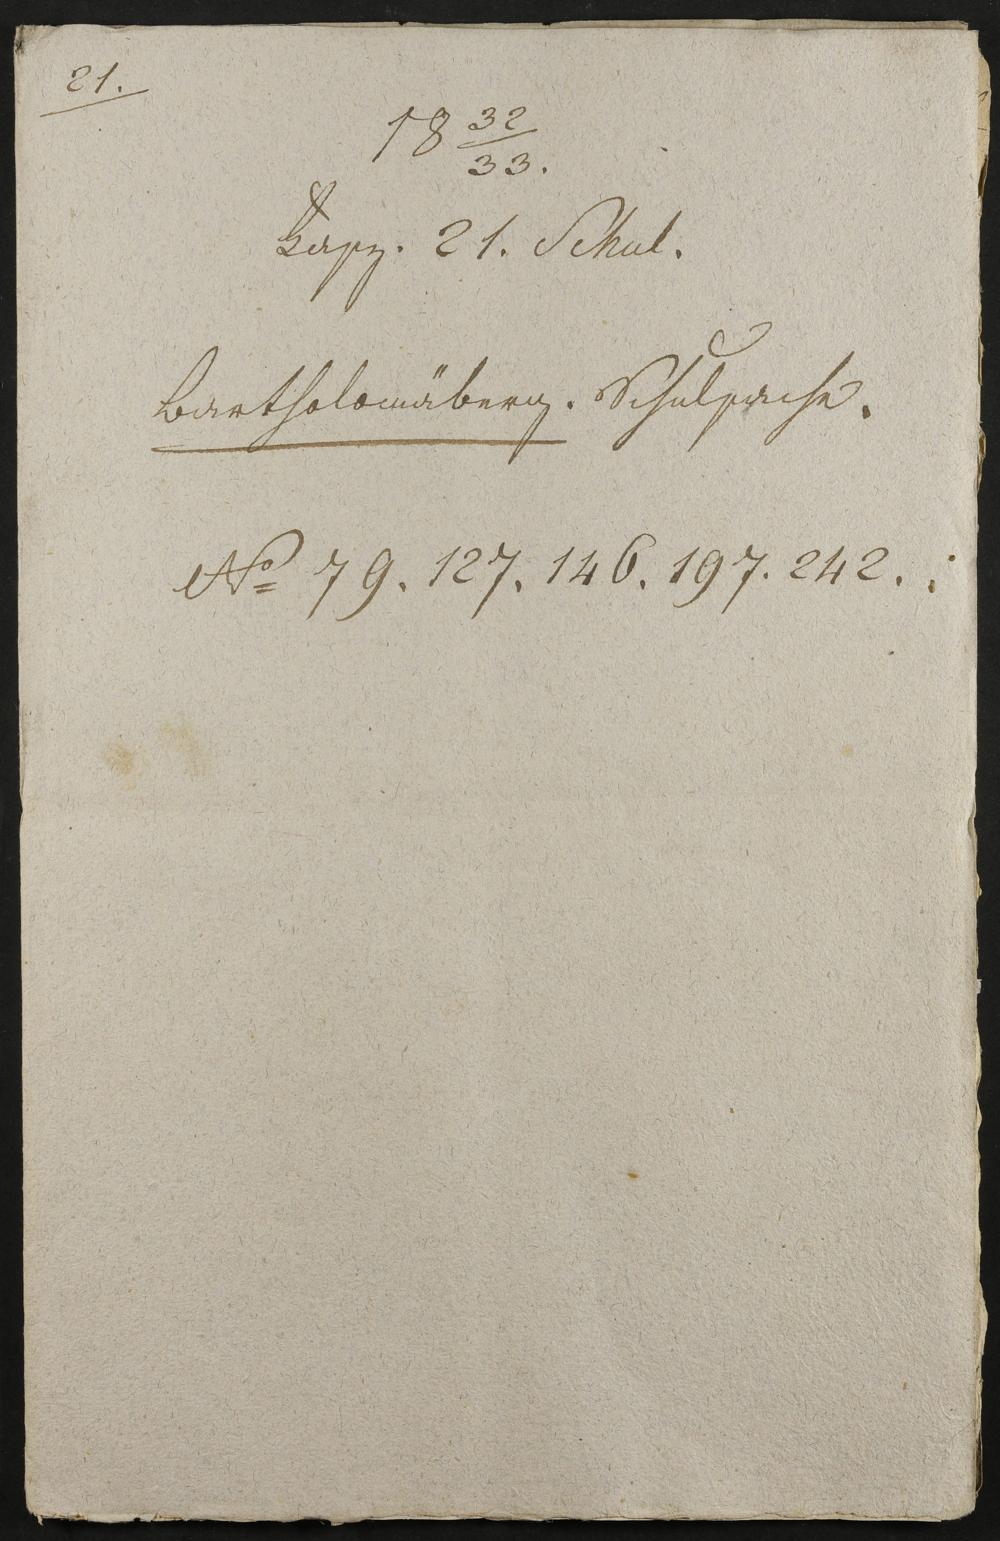 21.
18 32/33.
Fasz. 21. Schul.
Bartholomäberg. Schulsache.
No 79. 127. 146. 197. 242.